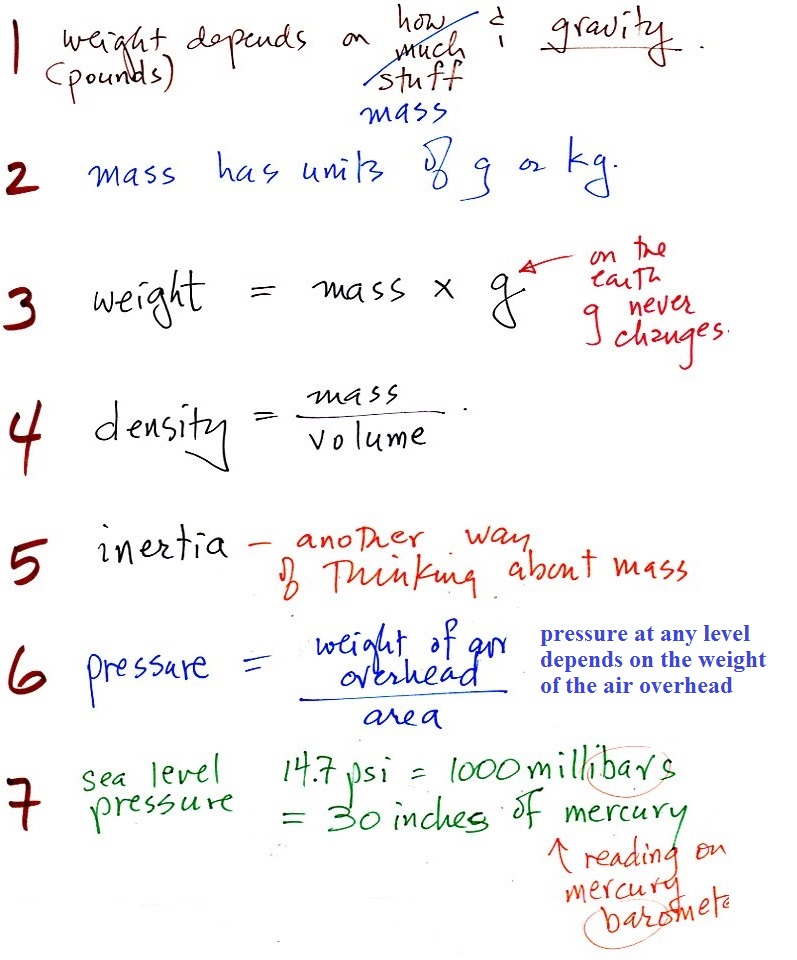 1 weight depends on how much stuff & gravity.
(pounds)
mass
2 mass has units of g or kg.
3 weight = mass x g
on the
earth
g never
changes.
4 density = mass
volume
5 inertia – another way
of thinking about mass
6 pressure = weight of air
overhead
area
pressure at any level
depends on the weight
of the air overhead
7 sea level
pressure
14.7 psi = 1000 millibars
= 30 inches of mercury
↑ reading on
mercury
baromete